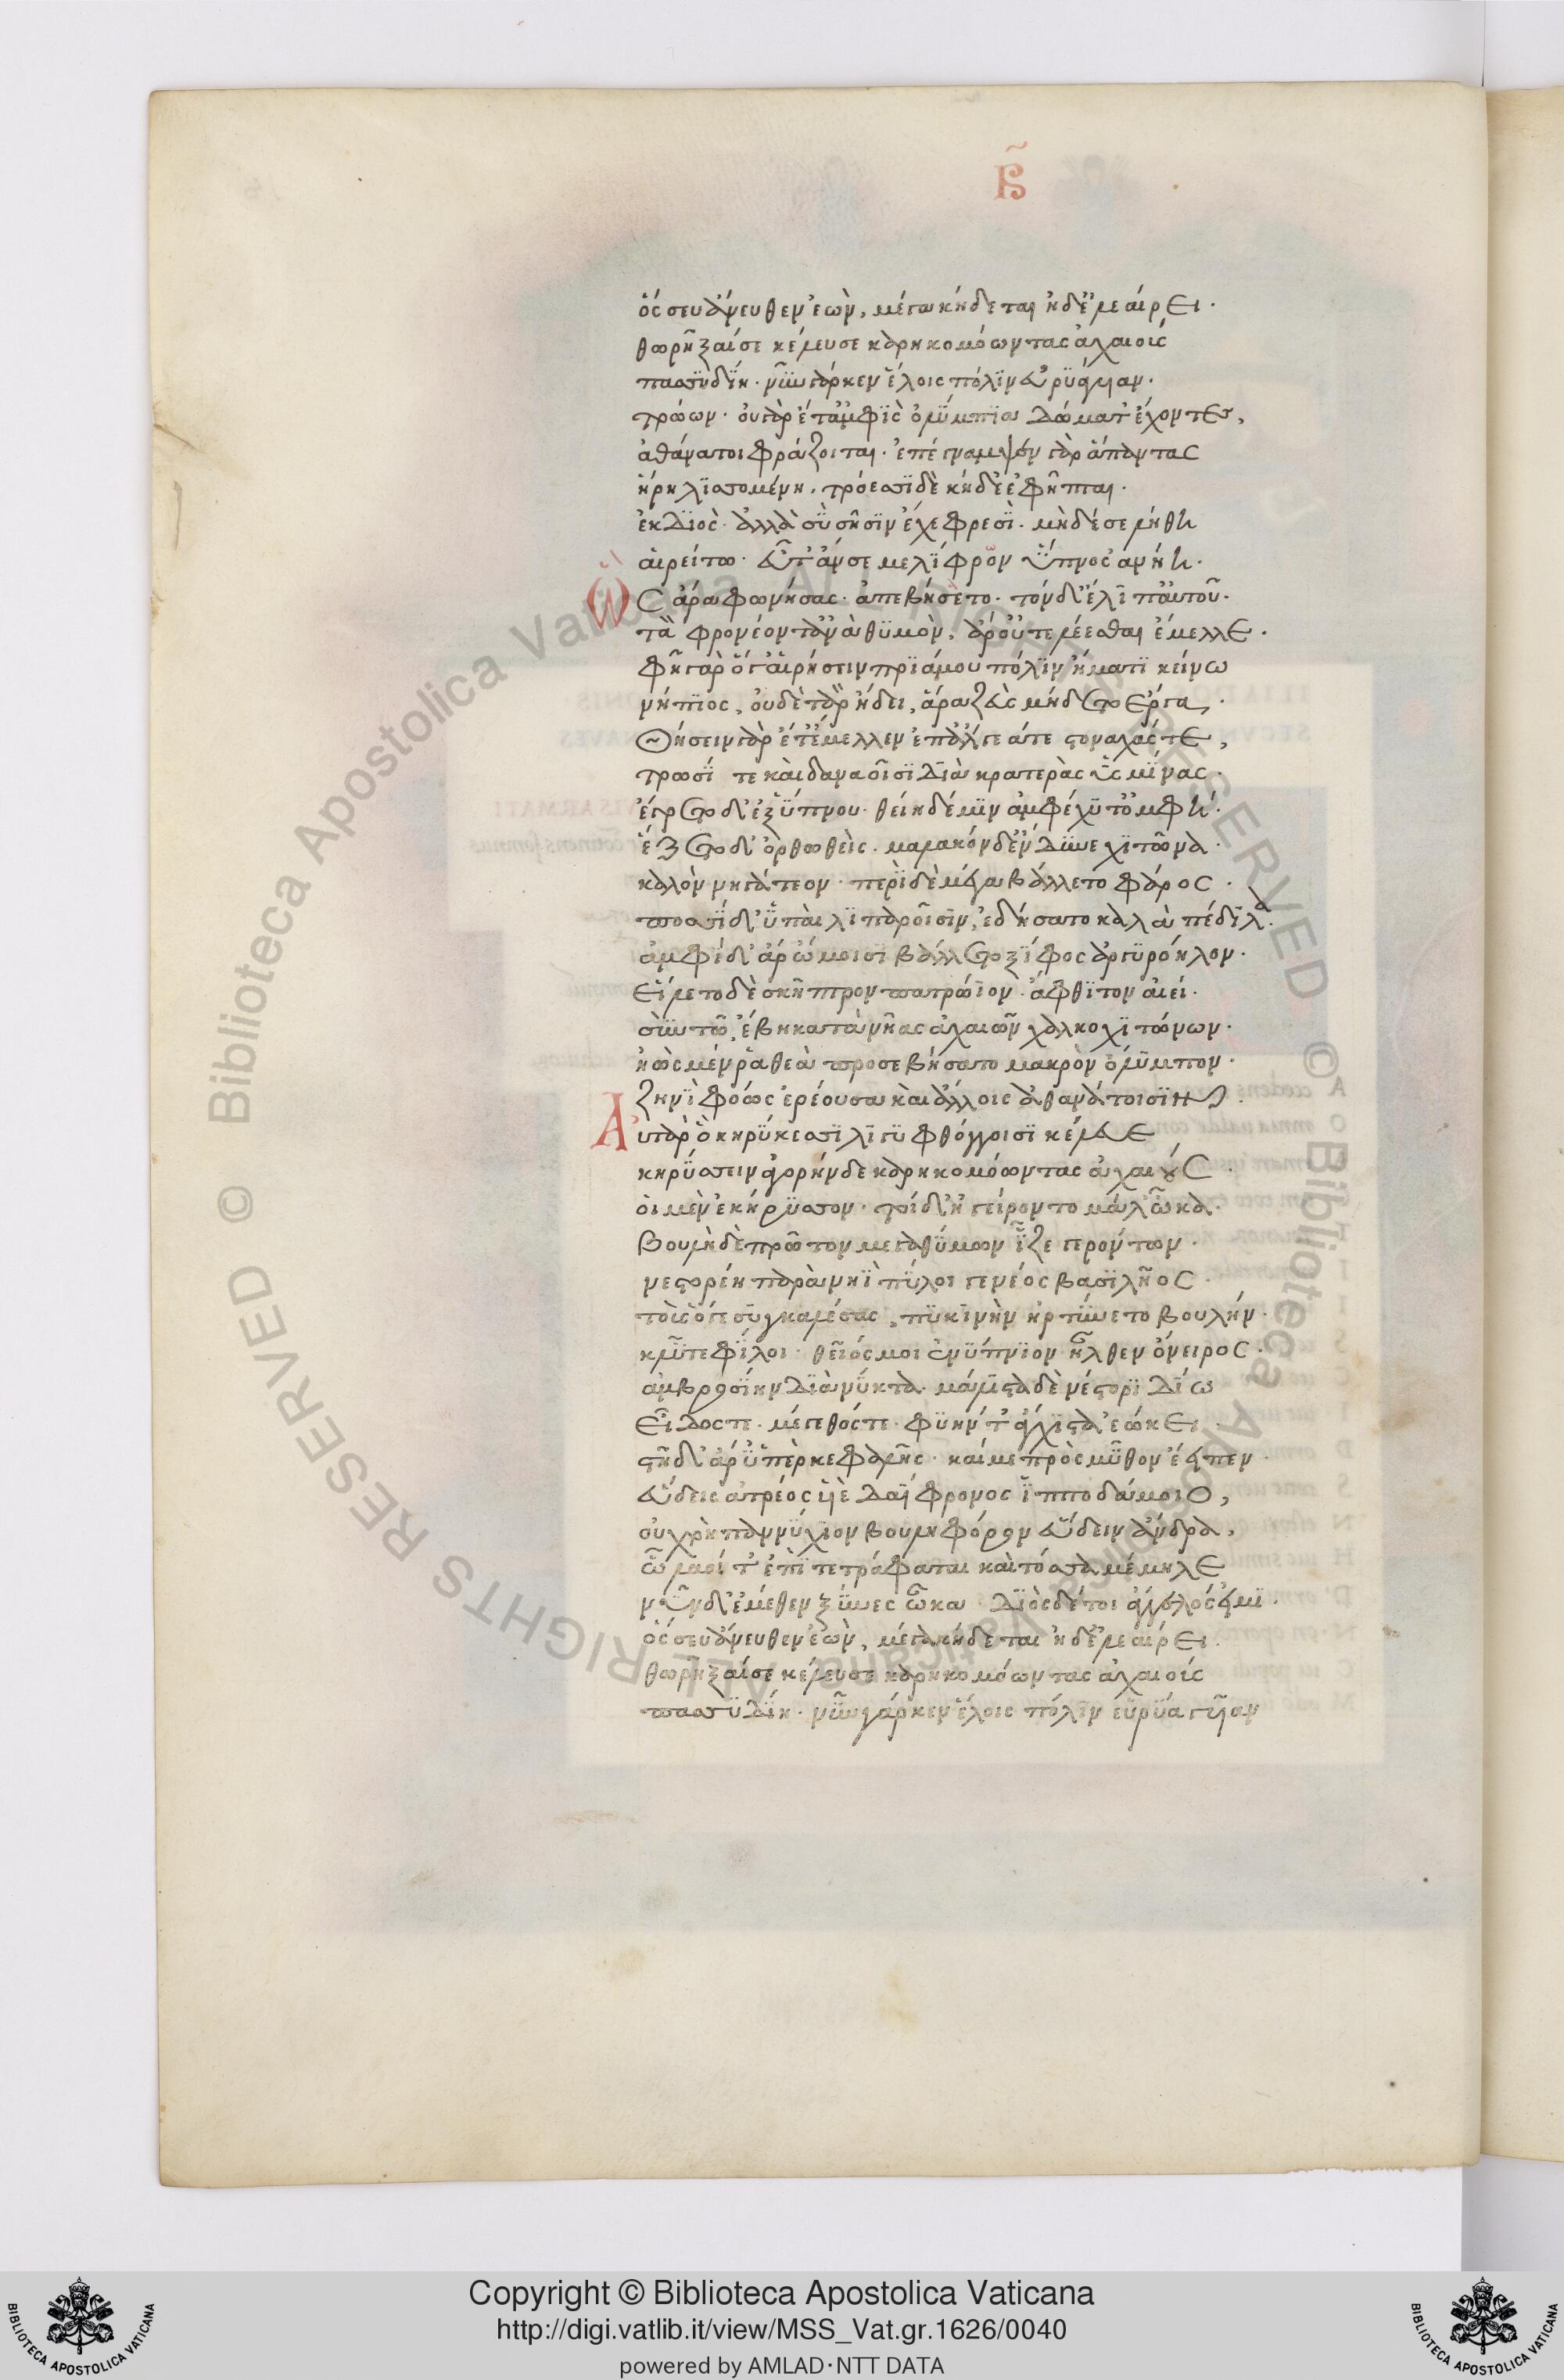 Β
ὅς σευ ἄνευθεν ἐὼν, μέγα κήδεται ἠδ' ἐλεαίρει.
θωρῆξαί σε κέλευσε καρηκομόωντας ἀχαιούς
πασσυδίη. νῦν γάρ κεν ἕλοις πόλιν εὐρυάγυιαν.
τρώων. οὐ γὰρ ἔτ' ἀμφὶς ὀλύμπια δώματ' ἔχοντες,
ἀθάνατοι φράζονται. ἐπέγναμψεν γὰρ ἅπαντας
ἥρη λισσομένη. τρώεσσι δὲ κήδε' ἐφῆπται.
ἐκ Διὸς. ἀλλὰ σὺ σῆσιν ἔχε φρεσὶ. μὴ δέ σε λήθη
αἱρείτω. εὖτ' ἄν σε μελίφρων ὕπνος ἀνήη.
Ὣς ἄρα φωνήσας. ἀπεβήσετο. τὸν δ' ἔλιπ' αὐτοῦ.
τὰ φρονέοντ' ἀνὰ θυμὸν, ἅ ῥ' οὐ τελέεσθαι ἔμελλε.
φῆ γὰρ ὅγ' αἱρήσειν πριάμου πόλιν ἤματι κείνω
νήπιος, οὐδὲ τὰ ἤδει, ἅ ῥα ζεὺς μήδετο ἔργα.
Θήσειν γὰρ ἔτ' ἔμελλεν ἐπ' ἄλγεά τε στοναχάς τε,
τρωσί τε καὶ δαναοῖσι διὰ κρατερὰς ὑσμίνας.
ἔγρετο δ' ἐξ ὕπνου. θείη δέ μιν ἀμφέχυτ' ὀμφή.
ἕζετο δ' ὀρθωθεὶς. μαλακὸν δ' ἔνδυνε χιτῶνα.
καλὸν νηγάτεον. περὶ δὲ μέγα βάλλετο φᾶρος.
ποσσὶ δ' ὑπαὶ λιπαροῖσιν, ἐδήσατο καλὰ πέδιλα.
ἀμφὶ δ' ἄρ ὤμοισι βάλλετο ξίφος ἀργυρόηλον.
Εἵλετο δὲ σκῆπτρον πατρώϊον. ἄφθιτον αἰεί.
σὺν τῶ, ἔβη κατὰ νῆας ἀχαιῶν χαλκοχιτώνων.
ἠὼς μέν ῥα θεὰ προσεβήσατο μακρὸν ὄλυμπον.
ζηνὶ φόως ἐρέουσα καὶ ἄλλοις ἀθανάτοισιν.
Αὐτὰρ ὃ κηρύκεσσι λιγυφθόγγοισι κέλευε
κηρύσσειν ἀγορήνδε καρηκομόωντας ἀχαιούς.
οἱ μὲν ἐκήρυσσον. τοὶ δ' ἠγείροντο μάλ' ὦκα.
Βουλὴ δὲ πρῶτον μεγαθύμων ἷζε γερόντων.
νεστορέη παρὰ νηῒ πυλοιγενέος βασιλῆος.
τοὺς ὅγε συγκαλέσας, πυκινὴν ἠρτύνετο βουλήν.
κλῦτε φίλοι. θεῖός μοι ἐνύπνιον ἦλθεν ὄνειρος.
ἀμβροσίην διὰ νύκτα. μάλιστα δὲ νέστορι δίω
Εἶδος τε. μέγεθός τε. φυήν τ' ἄγχιστα ἐώκει.
στῆ δ' ἄρ ὑπὲρ κεφαλῆς. καί με πρὸς μῦθον ἔειπεν.
Εὕδεις ἀτρέος υἱὲ δαΐφρονος ἱπποδάμοιο,
οὐ χρὴ παννύχιον βουληφόρον εὕδειν ἄνδρα,
ὧ λαοί τ' ἐπιτετράφαται καὶ τόσσα μέμηλε
νῦν δ' ἐμέθεν ξύνες ὦκα. Διὸς δέ τοι ἄγγελός εἰμι.
ὅς σευ ἄνευθεν ἐὼν, μέγα κήδεται ἠδ' ἐλεαίρει.
θωρῆξαί σε κέλευσε καρηκομόωντας ἀχαιούς
πασσυδίη. νῦν γάρ κεν ἕλοις πόλιν εὐρυάγυιαν
Copyright © Biblioteca Apostolica Vaticana
http://digi.vatlib.it/view/MSS_Vat.gr.1626/0040
powered by AMLAD·NTT DATA
BIBLIOTECA APOSTOLICA VATICANA
BIBLIOTECA APOSTOLICA VATICANA
© Biblioteca Apostolica Vaticana ALL RIGHTS RESERVED
© Biblioteca Apostolica Vaticana ALL RIGHTS RESERVED